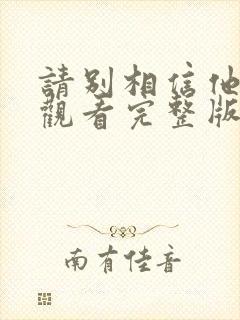 請別相信他
觀看完整版
南有佳音